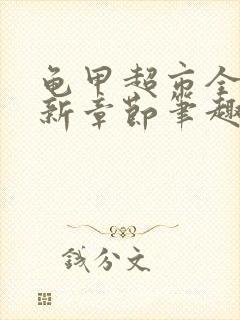 龟甲超市全
新章節筆趣
錢分文